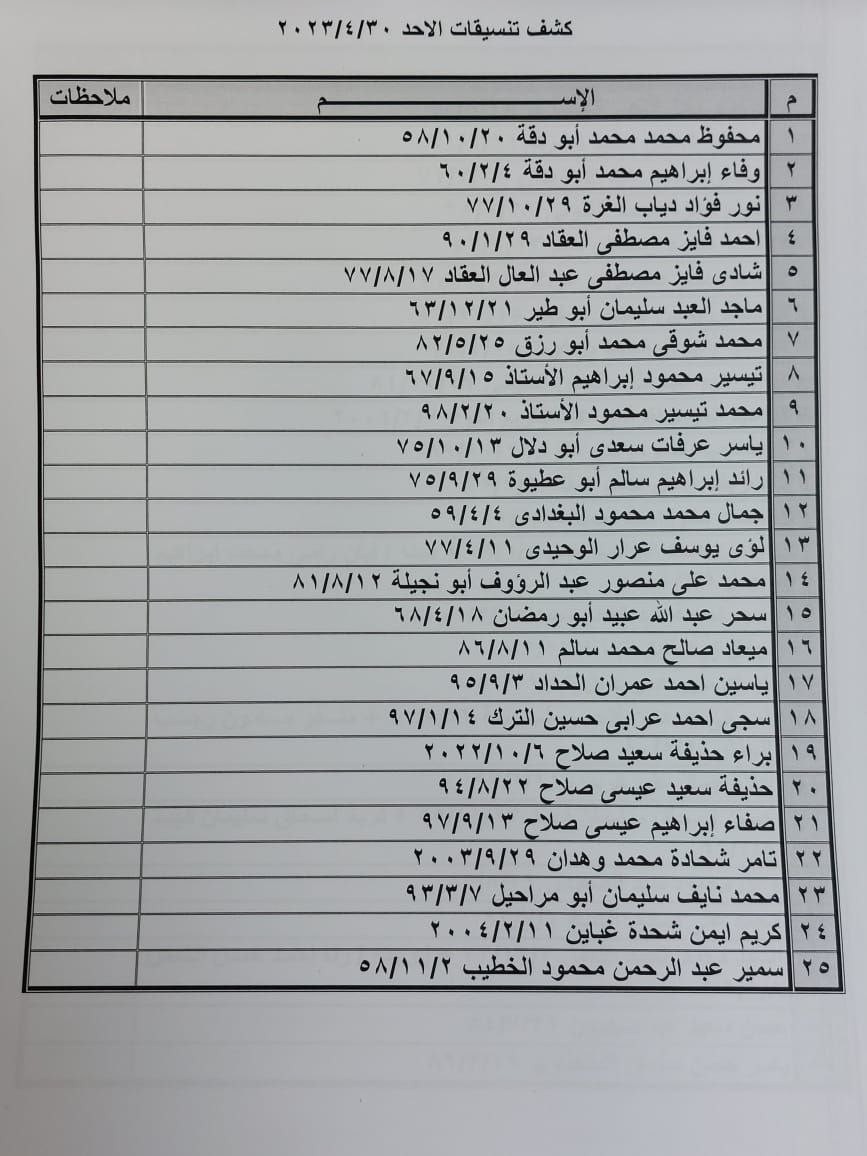 كشف تنسيقات الاحد ٢٠٢٣/٤/٣٠
م الإســـــــم ملاحظات
١ محفوظ محمد محمد أبو دقة ٥٨/١٠/٢٠
٢ وفاء إبراهيم محمد أبو دقة ٦٠/٢/٤
٣ نور فؤاد دياب الغرة ٧٧/١٠/٢٩
٤ احمد فايز مصطفى العقاد ٩٠/١/٢٩
٥ شادى فايز مصطفى عبد العال العقاد ٧٧/٨/١٧
٦ ماجد العبد سليمان أبو طير ٦٣/١٢/٢١
٧ محمد شوقى محمد أبو رزق ٨٢/٥/٢٥
٨ تيسير محمود إبراهيم الأستاذ ٦٧/٩/١٥
٩ محمد تيسير محمود الأستاذ ٩٨/٢/٢٠
١٠ ياسر عرفات سعدى أبو دلال ٧٥/١٠/١٣
١١ رائد إبراهيم سالم أبو عطيوة ٧٥/٩/٢٩
١٢ جمال محمد محمود البغدادى ٥٩/٤/٤
١٣ لؤى يوسف عرار الوحيدى ٧٧/٤/١١
١٤ محمد على منصور عبد الرؤوف أبو نجيلة ٨١/٨/١٢
١٥ سحر عبد الله عبيد أبو رمضان ٦٨/٤/١٨
١٦ ميعاد صالح محمد سالم ٨٦/٨/١١
١٧ ياسين احمد عمران الحداد ٩٥/٩/٣
١٨ سجى احمد عرابى حسين الترك ٩٧/١/١٤
١٩ براء حذيفة سعيد صلاح ٢٠٢٢/١٠/٦
٢٠ حذيفة سعيد عيسى صلاح ٩٤/٨/٢٢
٢١ صفاء إبراهيم عيسى صلاح ٩٧/٩/١٣
٢٢ تامر شحادة محمد وهدان ٢٠٠٣/٩/٢٩
٢٣ محمد نايف سليمان أبو مراحيل ٩٣/٣/٧
٢٤ كريم ايمن شحدة غباين ٢٠٠٤/٢/١١
٢٥ سمير عبد الرحمن محمود الخطيب ٥٨/١١/٢